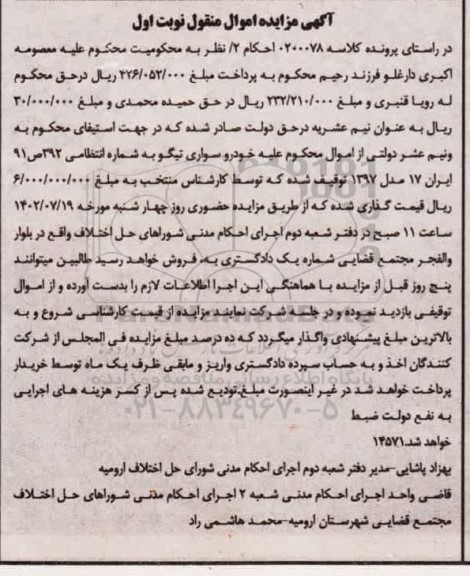 آگهی مزایده اموال منقول نوبت اول
در راستای پرونده کلاسه ۰۲۰۰۰۷۸ احکام ۲/ نظر به محکومیت محکوم علیه معصومه
اکبری دارغلو فرزند رحیم محکوم به پرداخت مبلغ ۴۲۶/۰۵۲/۰۰۰ ریال درحق محکوم
له رویا قنبری و مبلغ ۲۳۲/۲۱۰/۰۰۰ ریال در حق حمیده محمدی و مبلغ ۳۰/۰۰۰/۰۰۰
ریال به عنوان نیم عشریه درحق دولت صادر شده که در جهت استیفای محکوم به
ونیم عشر دولتی از اموال محکوم علیه خودرو سواری تیگو به شماره انتظامی ۳۹۲ص۹۱
ایران ۱۷ مدل ۱۳۹۷ توقیف شده که توسط کارشناس منتخب به مبلغ ۶/۰۰۰/۰۰۰/۰۰۰
ریال قیمت گذاری شده که از طریق مزایده حضوری روز چهار شنبه مورخه ۱۴۰۲/۰۷/۱۹
ساعت ۱۱ صبح در دفتر شعبه دوم اجرای احکام مدنی شوراهای حل اختلاف واقع در بلوار
والفجر مجتمع قضایی شماره یک دادگستری به، فروش خواهد رسید طالبین میتوانند
پنج روز قبل از مزایده با هماهنگی این اجرا اطلاعات لازم را بدست آورده و از اموال
توقیفی بازدید نموده و در جلسه شرکت نمایند مزایده از قیمت کارشناسی شروع و به
بالاترین مبلغ پیشنهادی واگذار میگردد که ده درصد مبلغ مزایده فی المجلس از شرکت
کنندگان اخذ و به حساب سپرده دادگستری واریز و مابقی ظرف یک ماه توسط خریدار
پرداخت خواهد شد در غیر اینصورت مبلغ تودیع شده پس از کسر هزینه های اجرایی
به نفع دولت ضبط
خواهد شد.۱۴۵۷۱
بهزاد پاشایی-مدیر دفتر شعبه دوم اجرای احکام مدنی شورای حل اختلاف ارومیه
قاضی واحد اجرای احکام مدنی شعبه ۲ اجرای احکام مدنی شوراهای حل اختلاف
مجتمع قضایی شهرستان ارومیه-محمد هاشمی راد
پایگاه اطلاع رسانی مناقصه و مزایده
۰۲۱-۸۸۳۴۹۶۷۰-۵